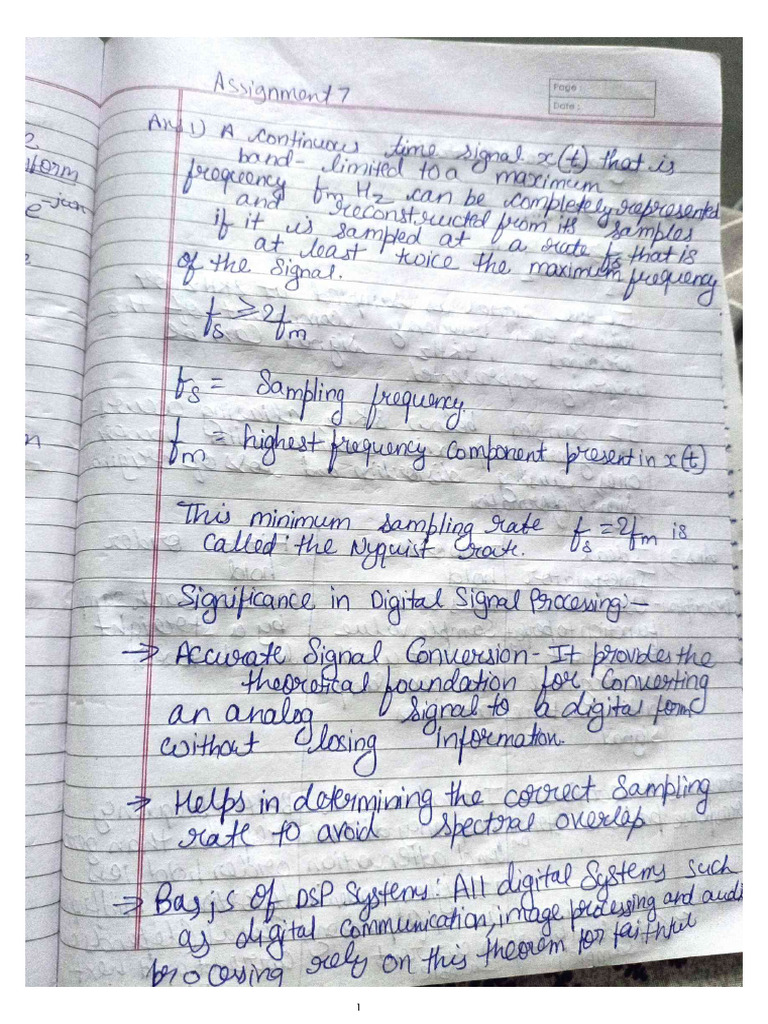 Assignment 7
Page :
Date :
Ans 1) A continuous time signal x(t) that is
band-limited to a maximum
frequency fm Hz can be completely represented
and reconstructed from its samples
if it is sampled at a rate fs that is
at least twice the maximum frequency
of the signal.
fs ≥ 2fm
fs = Sampling frequency.
fm = highest frequency component present in x(t)
This minimum sampling rate fs = 2fm is
called the Nyquist rate.
Significance in Digital Signal Processing:-
→ Accurate Signal Conversion - It provides the
theoretical foundation for converting
an analog signal to a digital form
without losing information.
→ Helps in determining the correct sampling
rate to avoid spectral overlap
→ Basis of DSP systems: All digital systems such
as digital communication, image processing and audi
processing rely on this theorem for faithful
form
e^-jωn
n
1